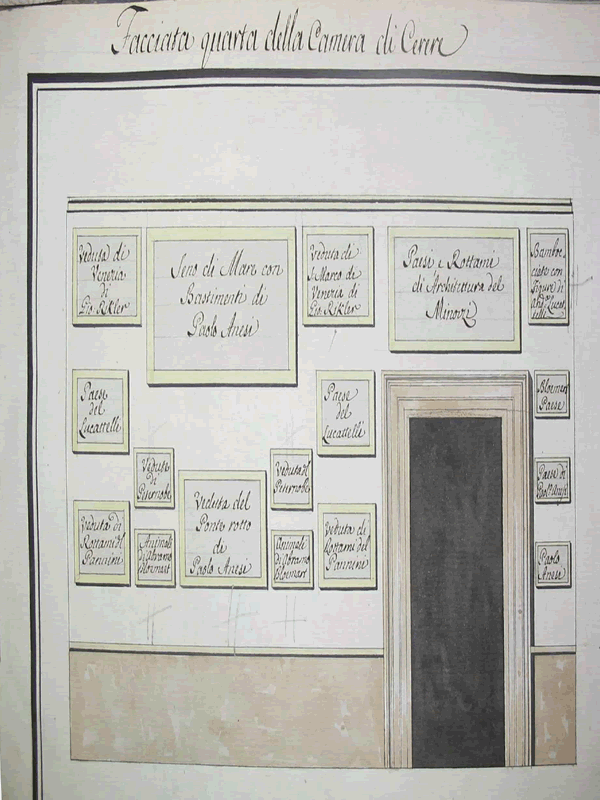 Facciata quarta della Camera di Cerere
Veduta di
Venezia
di
Gio. Rikler
Seno di Mare con
Bastimenti di
Paolo Anesi
Veduta di
S. Marco de
Venezia di
Gio. Rikler
Paesi e Rottami
di Architettura del
Minozzi
Bamboc-
ciate con
Figure di
Paese
del
Lucattelli
Paese
del
Lucattelli
Bloemart
Paese
Veduta
di
Veduta di
Veduta del
Ponte rotto
di
Paolo Anesi
Paese di
Veduta di
Rottami del
Pannini
Animali
di Abramo
Bloemart
Animali
di Abramo
Bloemart
Veduta di
Rottami del
Pannini
Paolo
Anesi